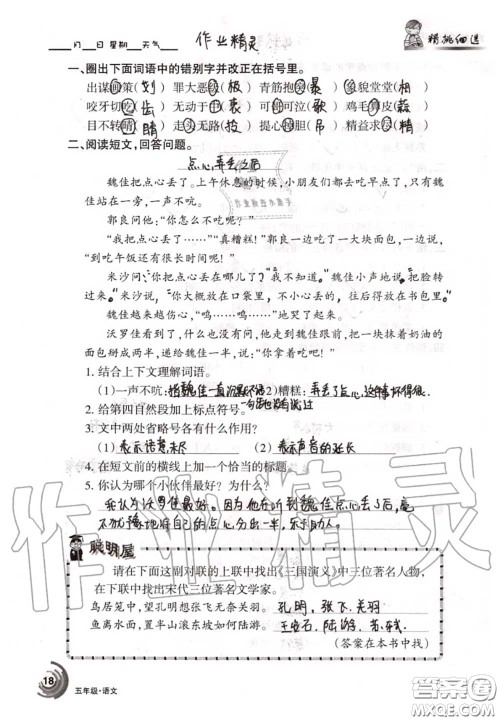 ____月____日 星期____天气____ 作业精灵 精挑细选
一、圈出下面词语中的错别字并改正在括号里。
出谋画策(划) 罪大恶(极) 青筋抱(暴) 貌堂堂(相)
咬牙切(齿) 无动于(衷) 可可泣(歌) 鸡毛皮(蒜)
目不转(睛) 走无路(投) 提心胆(吊) 精益求(精)
二、阅读短文,回答问题。
点心弄丢之后
魏佳把点心丢了。上午休息的时候,小朋友们都去吃早点了,只有魏
佳站在一旁,一声不吭。
郭良问他:“你怎么不吃呢?”
“我把点心弄丢了……”“真糟糕!”郭良一边吃着一大块面包,一边说,
“到吃午饭还有很长时间呢!”
米沙问:“你把点心丢在哪儿了?”“我不知道。”魏佳小声地说,把脸转
过来。米沙说,“你大概放在口袋里,不小心丢的,往后得放在书包里。”
魏佳越来越伤心,“呜……呜……”地哭了起来。
沃罗佳看到了,什么也没有问,他走到魏佳跟前,把一块抹着奶油的
面包掰成两半,递给魏佳一半说:“你拿着吃吧!”
1. 结合上下文理解词语。
(1)一声不吭:指魏佳一直沉默不语 (2)糟糕:弄丢了点心,这事坏得很。
2. 给第四自然段加上标点符号。一句话也没有说
3. 文中两处省略号各有什么作用?
(1) 表示语意未尽 (2) 表示声音的延长
4. 在短文前的横线上加一个恰当的标题。
5. 你认为哪个小伙伴最好?为什么?
我认为沃罗佳最好。因为他在听到魏佳点心丢了后,毫
不犹豫地将自己的点心分出一半,乐于助人。
聪明屋
请在下面这副对联的上联中找出《三国演义》中三位著名人物,
在下联中找出宋代三位著名文学家。
鸟居笼中,望孔明想张飞无奈关羽。 孔明、张飞、关羽
鱼离水面,置半山滚东坡如何陆游。 王安石、陆游、苏轼
(答案在本书中找)
18
五年级·语文
作业精灵